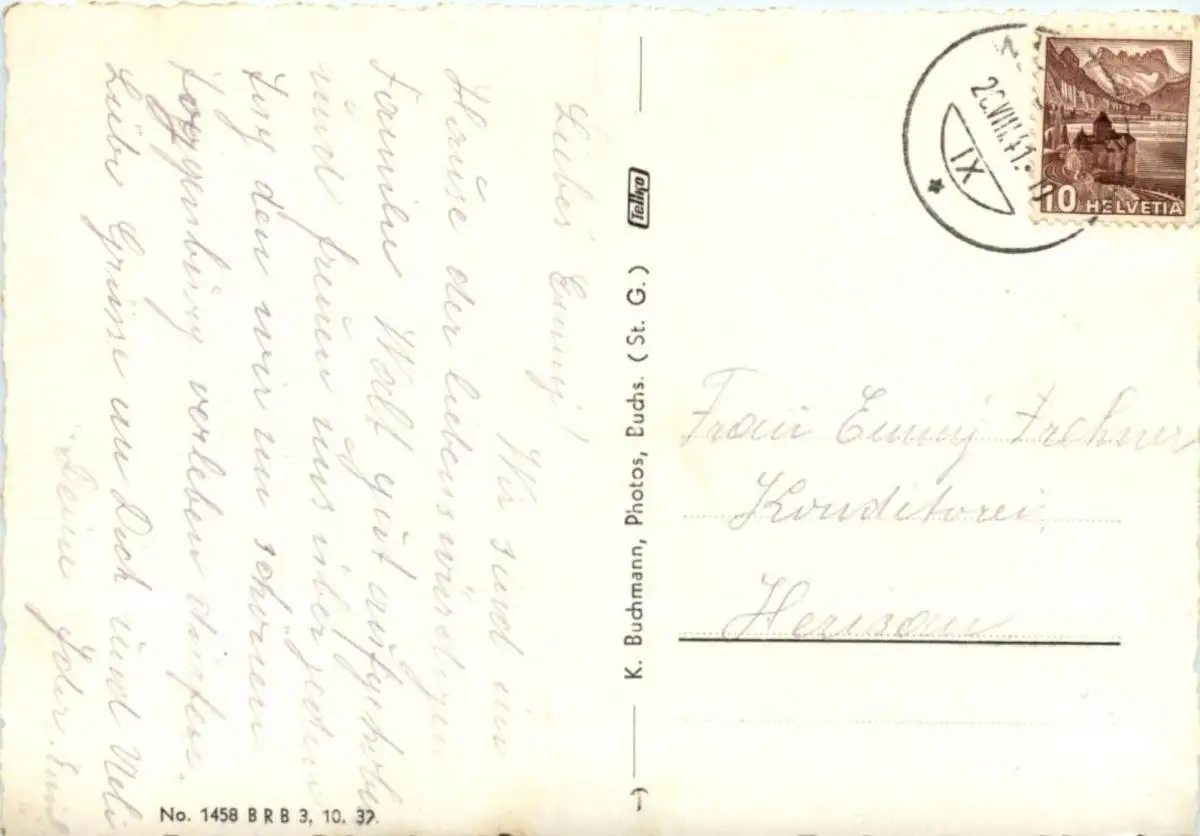 Liebes Emmy!
Wir sind im
Hause der liebenswürdigen
Familie Wolf gut aufgehoben
und freuen uns über jeden
Tag den wir im schönen
Toggenburg verleben dürfen.
Liebe Grüsse an Dich und
Deine
K. Buchmann, Photos, Buchs. (St. G.)
Telko
No. 1458 B R B 3, 10. 39.
IX
10 HELVETIA
Frau Emmy
Konditorei
Herisau